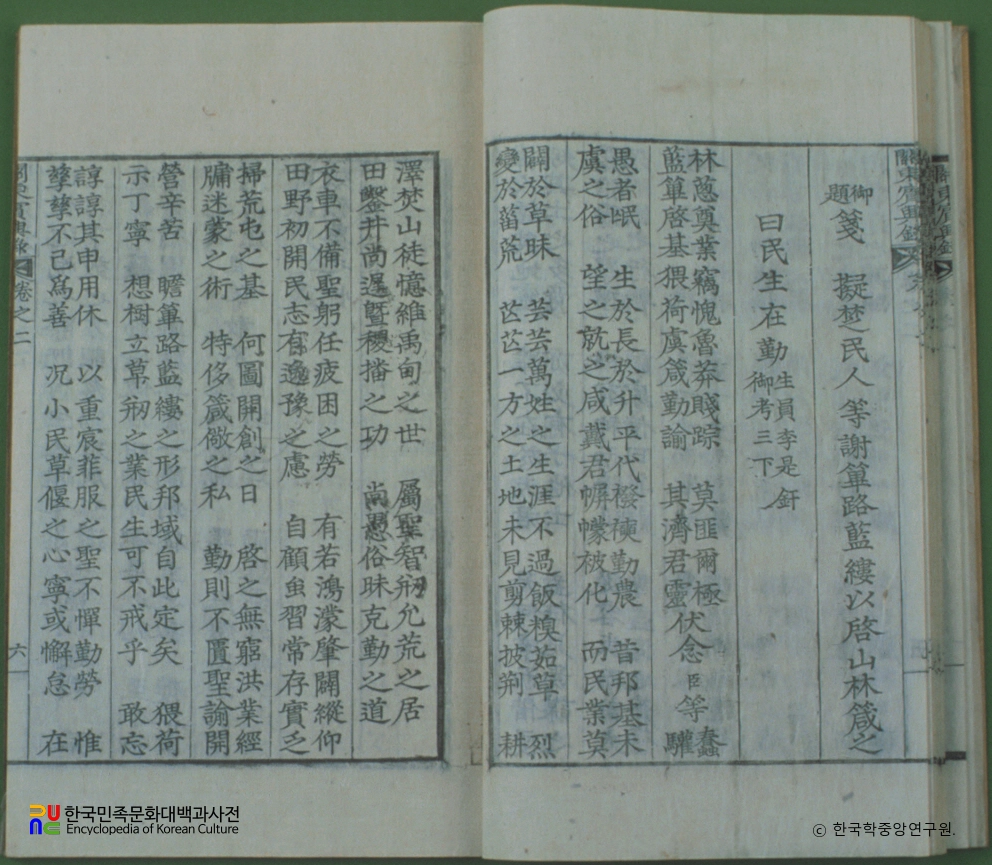 關東賓興錄
御題箋 擬楚民人等謝篳路藍縷以啓山林箴之
曰民生在勤 生員李是釬 御考三下
林蒽奠業竊愧魯莽賤踪 莫匪爾極伏念臣等蠢
藍篳啓基猥荷虞箴勤諭 其濟君靈 驩
愚者眠 生於長於升平代襏襫勤農 昔邦基未
虞之俗 望之就之咸戴君幈幪被化 而民業莫
闢於草昧 芸芸萬姓之生涯不過飯糗茹草 烈
變於菑荒 芒芒一方之土地未見剪棘披荆 耕
澤焚山徒憶維禹甸之世 屬聖智刱允荒之居
田鑿井尚遲曁稷播之功 尚愚俗昧克勤之道
衣車不備聖躬任疲困之勞 有若鴻濛肇闢縱仰
田野初開民志有逸豫之慮 自顧䖝習常存實乏
掃荒屯之基 何圖開創之日 啓之無窮洪業經
牖迷蒙之術 特侈箴儆之私 勤則不匱聖諭開
營辛苦 瞻篳路藍縷之形邦域自此定矣 猥荷
示丁寧 想樹立草刱之業民生可不戒乎 敢忘
諄諄其申用休 以重宸菲服之聖不憚勤勞 惟
孳孳不已爲善 况小民草偃之心寧或懈怠 在
卷之二
六
한국민족문화대백과사전
Encyclopedia of Korean Culture
© 한국학중앙연구원.